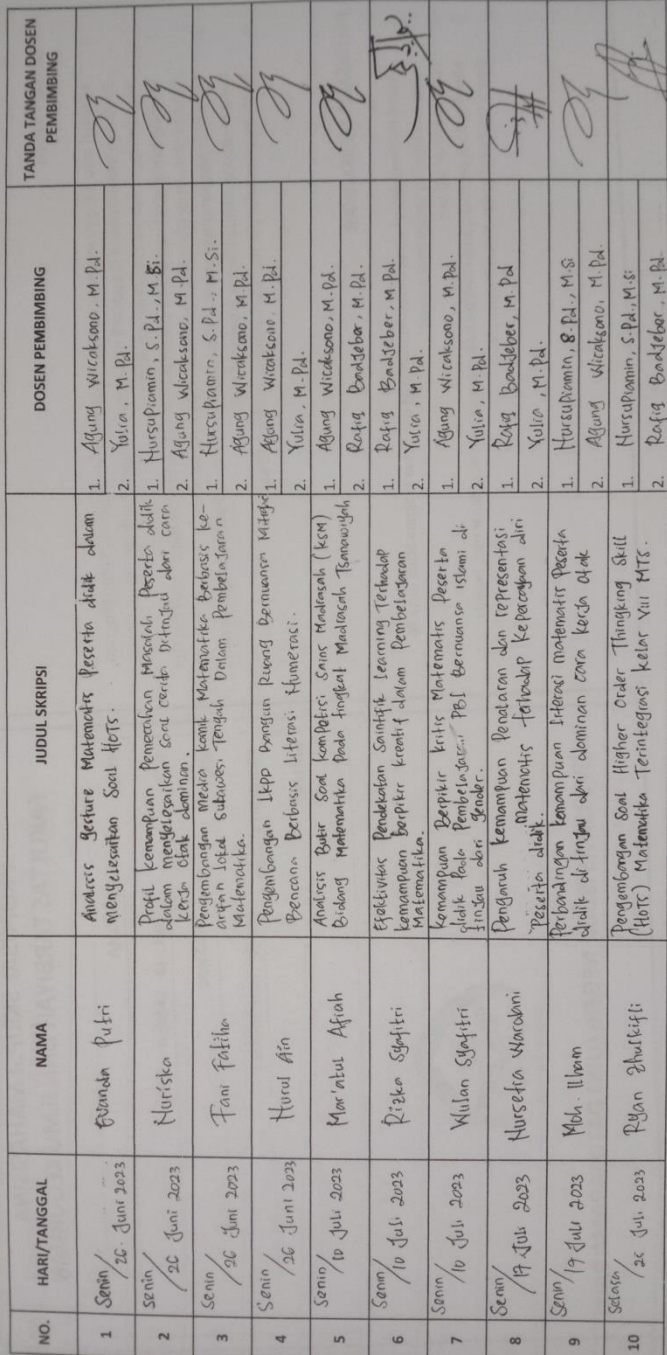 NO. HARI/TANGGAL NAMA JUDUL SKRIPSI DOSEN PEMBIMBING TANDA TANGAN DOSEN
PEMBIMBING
1 Senin/26 Juni 2023 Evanda Putri
Analisis gesture Matematis Peserta didik dalam
menyelesaikan Soal HOTS.
1. Agung Wicaksono, M.Pd.
2. Yulia, M.Pd.
2 Senin/26 Juni 2023 Nuriska
Profil Kemampuan Pemecahan Masalah Peserta didik
dalam menyelesaikan soal cerita Ditinjau dari cara
kerja otak dominan.
1. Nursupiamin, S.Pd., M.Si.
2. Agung Wicaksono, M.Pd.
3 Senin/26 Juni 2023 Fani Fatiha
Pengembangan media komik Matematika Berbasis ke-
arifan lokal Sulawesi Tengah Dalam Pembelajaran
Matematika.
1. Nursupiamin, S.Pd., M.Si.
2. Agung Wicaksono, M.Pd.
4 Senin/26 Juni 2023 Nurul Ain
Pengembangan LKPD Bangun Ruang Bernuansa Mitigasi
Bencana Berbasis Literasi Numerasi.
1. Agung Wicaksono, M.Pd.
2. Yulia, M.Pd.
5 Senin/10 Juli 2023 Mar'atul Afiah
Analisis Butir Soal Kompetisi Sains Madrasah (KSM)
Bidang Matematika Pada tingkat Madrasah Tsanawiyah
1. Agung Wicaksono, M.Pd.
2. Rafiq Badjeber, M.Pd.
6 Senin/10 Juli 2023 Rizka Syafitri
Efektivitas Pendekatan Saintifik Learning Terhadap
kemampuan Berpikir kreatif dalam Pembelajaran
Matematika.
1. Rafiq Badjeber, M.Pd.
2. Yulia, M.Pd.
7 Senin/10 Juli 2023 Wulan Syafitri
Kemampuan Berpikir kritis Matematis Peserta
didik Pada Pembelajaran PBI Bernuansa Islami di
tinjau dari gender.
1. Agung Wicaksono, M.Pd.
2. Yulia, M.Pd.
8 Senin/17 Juli 2023 Nursetia Warabni
Pengaruh Kemampuan Penalaran dan representasi
matematis terhadap Kepercayaan diri
Peserta didik.
1. Rafiq Badjeber, M.Pd
2. Yulia, M.Pd.
9 Senin/17 Juli 2023 Moh. Ilham
Perbandingan kemampuan literasi matematis Peserta
didik di tinjau dari dominan cara kerja otak
1. Nursupiamin, S.Pd., M.Si
2. Agung Wicaksono, M.Pd.
10 Selasa/25 Juli 2023 Ryan Zhulkifli
Pengembangan Soal Higher Order Thingking Skill
(HOTS) Matematika Terintegrasi kelas VIII MTS.
1. Nursupiamin, S.Pd., M.Si
2. Rafiq Badjeber, M.Pd.